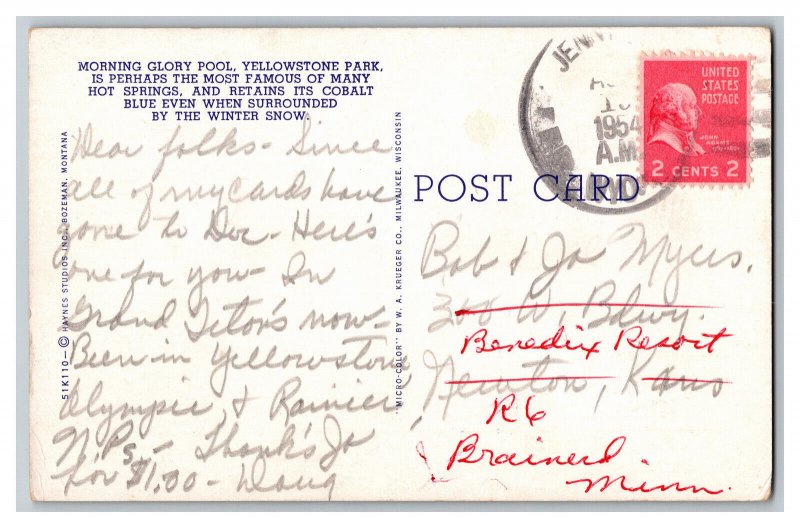 MORNING GLORY POOL, YELLOWSTONE PARK,
IS PERHAPS THE MOST FAMOUS OF MANY
HOT SPRINGS, AND RETAINS ITS COBALT
BLUE EVEN WHEN SURROUNDED
BY THE WINTER SNOW.
51K110—© HAYNES STUDIOS INC., BOZEMAN, MONTANA
Dear folks - Since
all of my cards have
gone to Doc - Here's
one for you - In
Grand Teton's now -
Been in Yellowstone,
Olympic, & Rainier
N.Ps. - Thank's Jo
for $1.00 - Doug
"MICRO-COLOR" BY W. A. KRUEGER CO., MILWAUKEE, WISCONSIN
POST CARD
JENN
1954
A.M.
UNITED
STATES
POSTAGE
JOHN
ADAMS
1797-1801
2 CENTS 2
Bob & Jo Myers.
300 W. Bdwy.
Benedix Resort
Newton, Kans
R6
Brainerd
Minn.